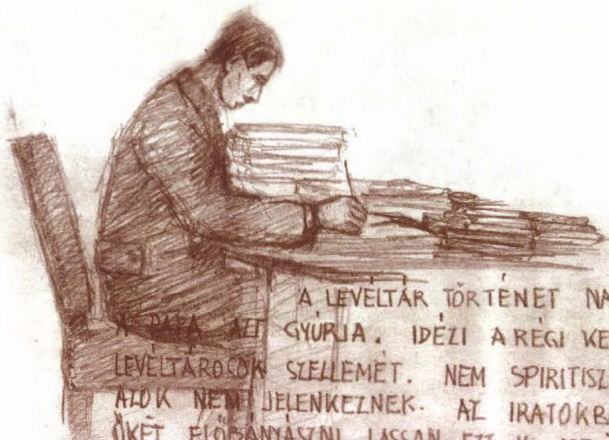 A LEVÉLTÁR TÖRTÉNET NA
A PAPA AZT GYÚRJA. IDÉZI A RÉGI KE
LEVÉLTÁROSOK SZELLEMÉT. NEM SPIRITISZ
AZOK NEM JELENKEZNEK. AZ IRATOKB
ŐKET ELŐBÁNYÁSZNI LASSAN